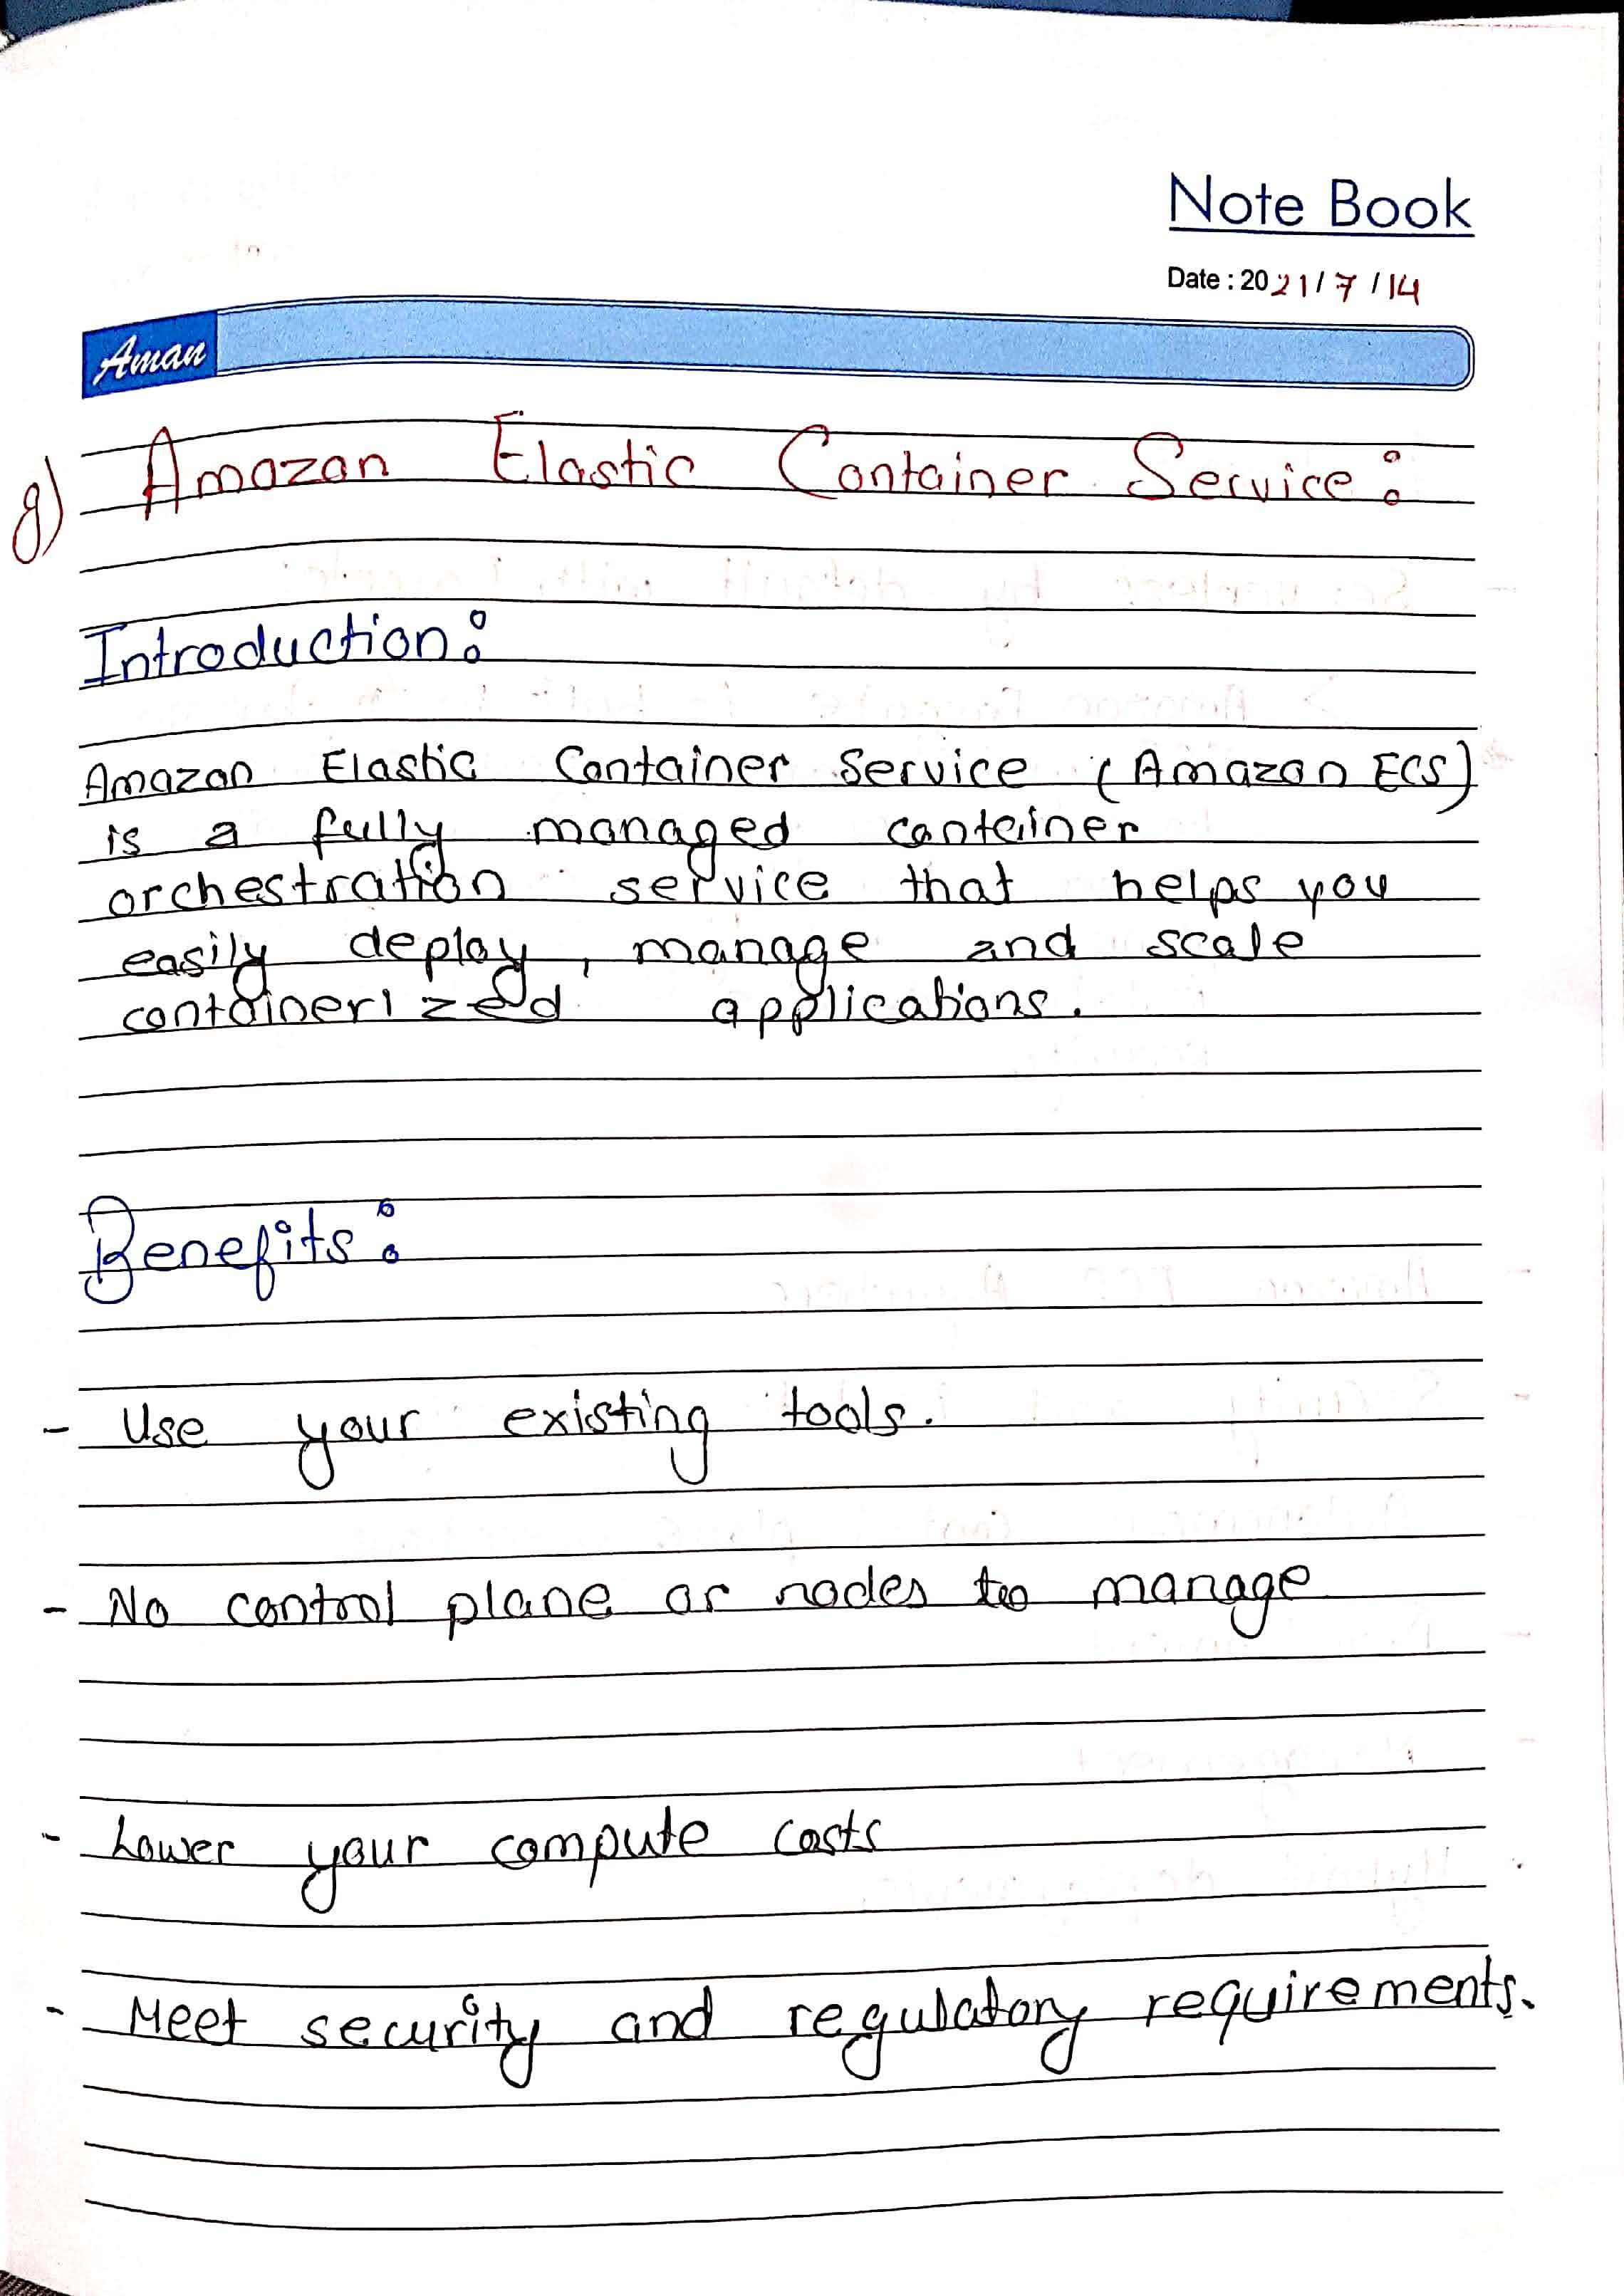 Note Book
Date : 2021/7/14
Aman
g) Amazon Elastic Container Service:
Introduction:
Amazon Elastic Container Service (Amazon ECS)
is a fully managed container
orchestration service that helps you
easily deploy, manage and scale
containerized applications.
Benefits:
- Use your existing tools.
- No control plane or nodes to manage
- Lower your compute costs
- Meet security and regulatory requirements.